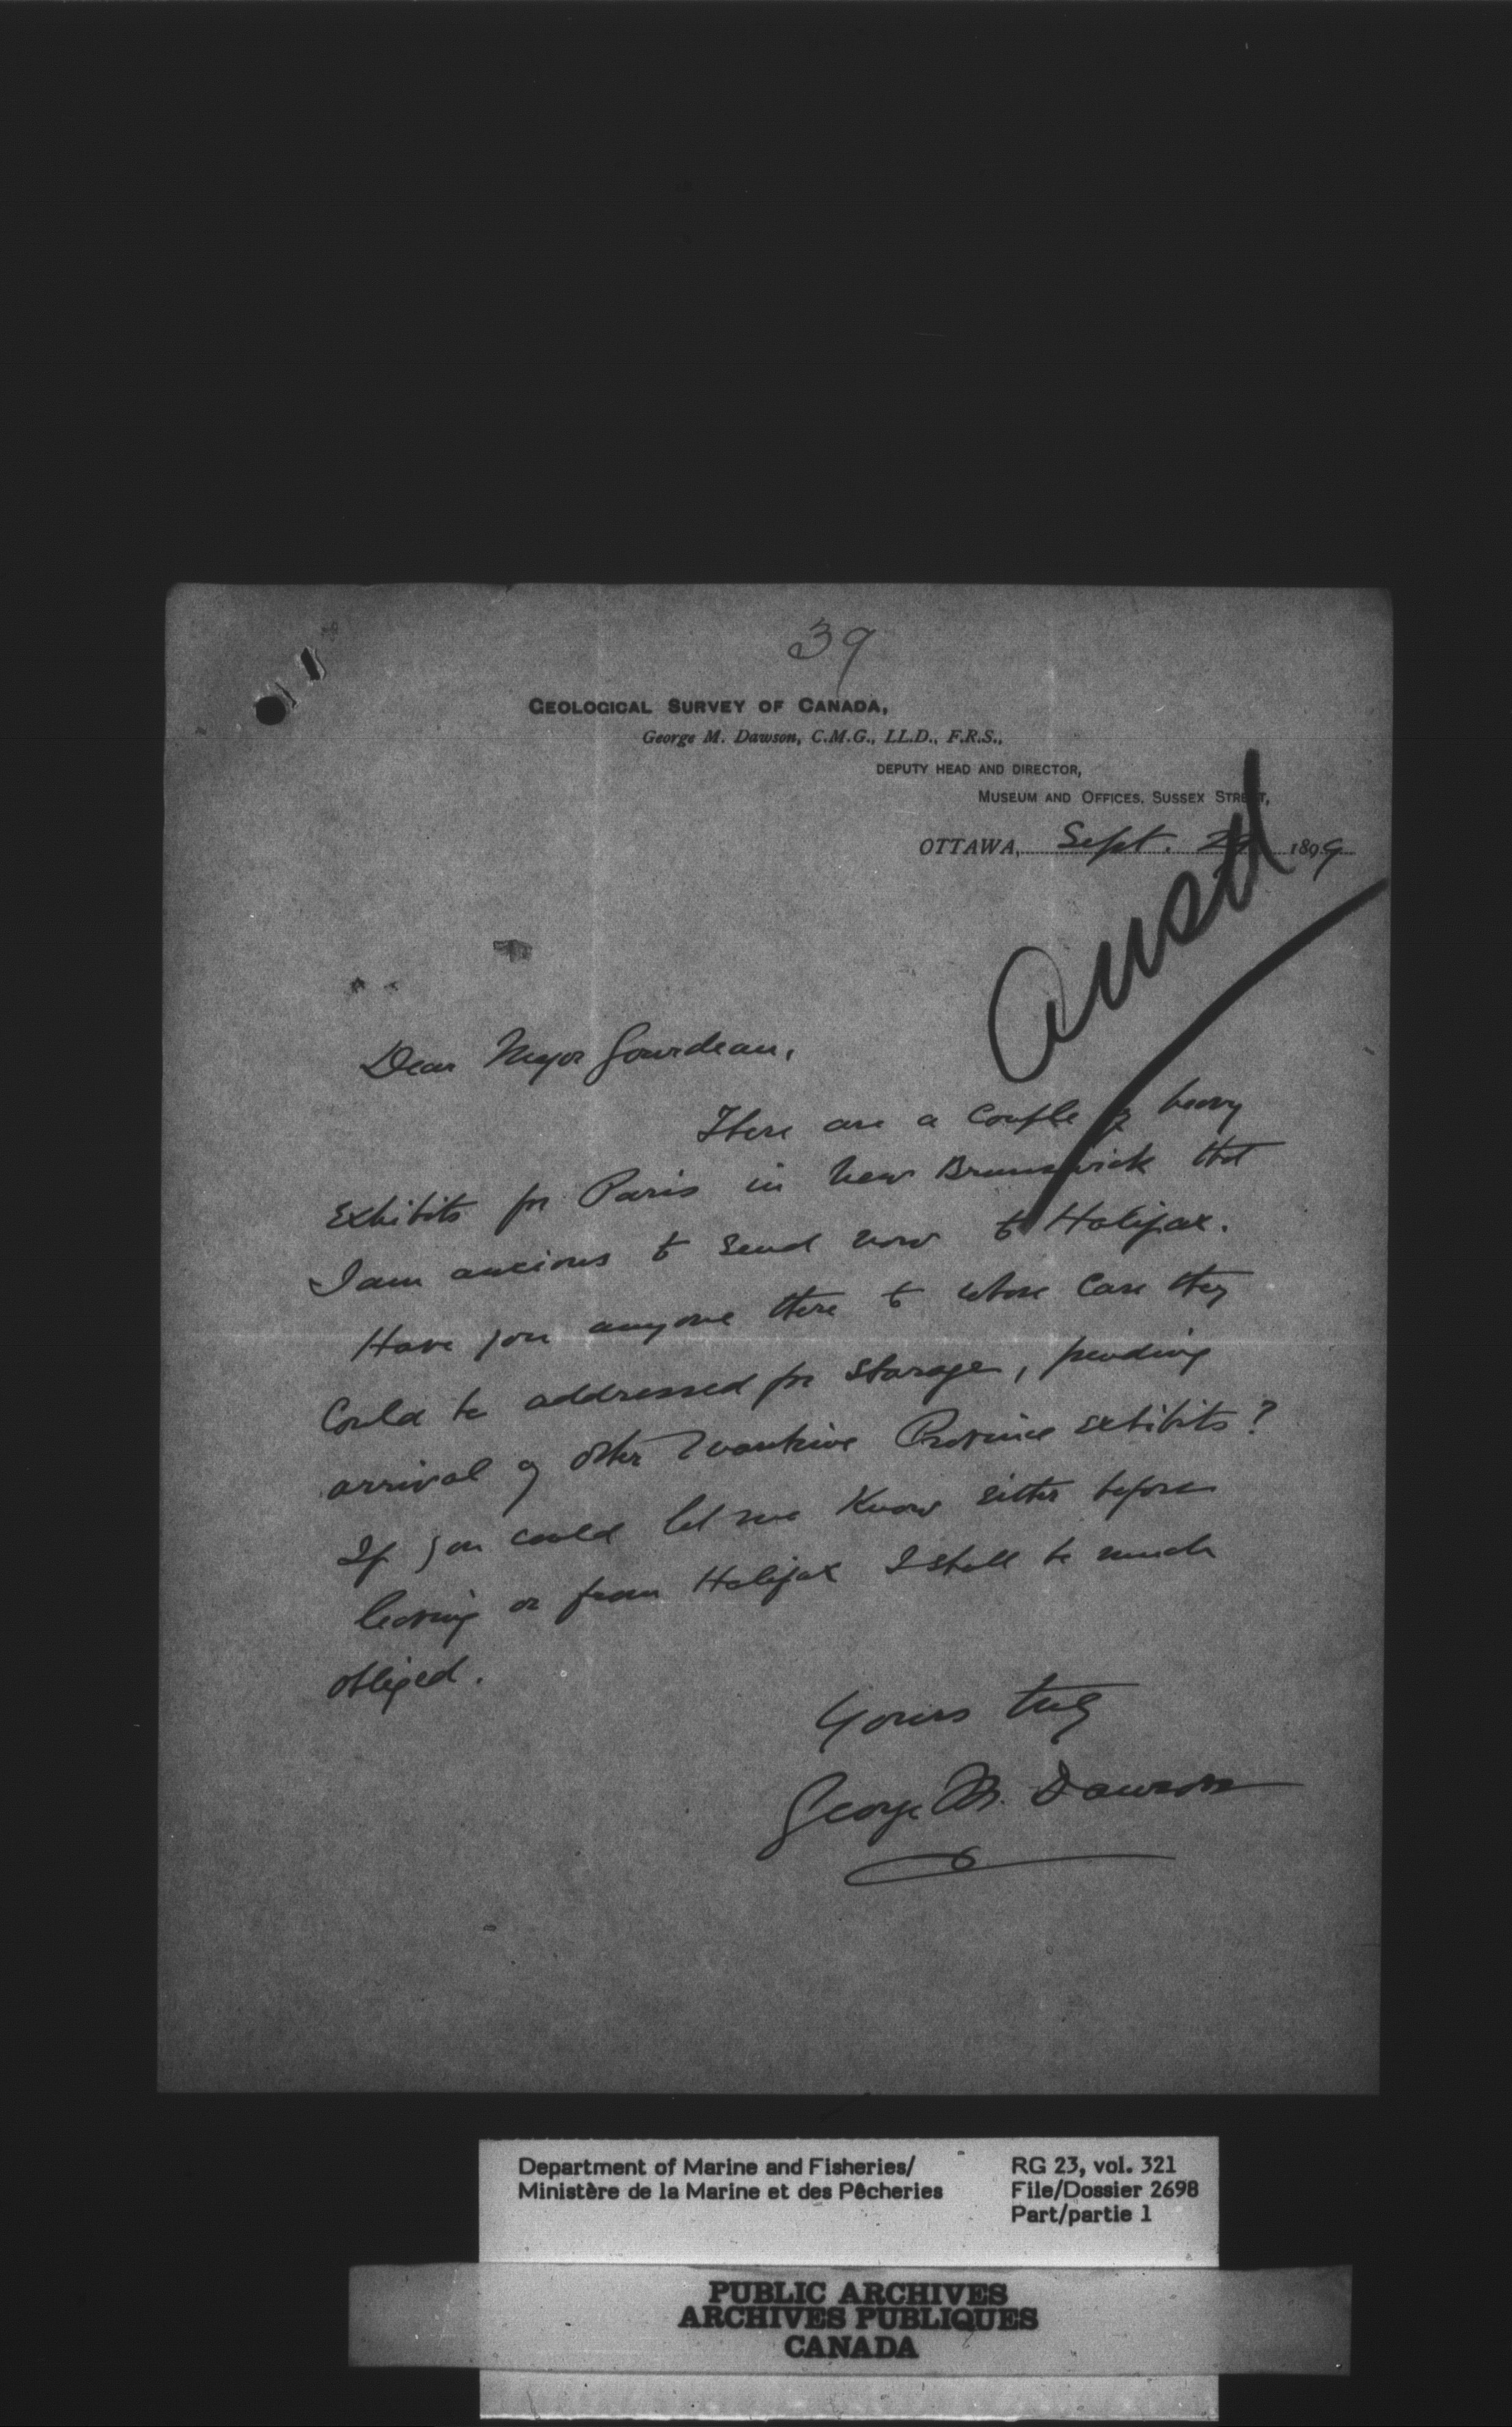 39
GEOLOGICAL SURVEY OF CANADA,
George M. Dawson, C.M.G., LL.D., F.R.S.,
DEPUTY HEAD AND DIRECTOR,
MUSEUM AND OFFICES, SUSSEX STREET,
OTTAWA, Sept. 1899
ansd
Dear Major Gourdeau,
There are a couple of heavy
exhibits for Paris in New Brunswick that
I am anxious to send now to Halifax.
Have you anyone there to whose care they
could be addressed for storage, pending
arrival of other Maritime Province exhibits?
If you could let me know either before
leaving or from Halifax I shall be much
obliged.
Yours truly
George M. Dawson
Department of Marine and Fisheries/
Ministère de la Marine et des Pêcheries
RG 23, vol. 321
File/Dossier 2698
Part/partie 1
PUBLIC ARCHIVES
ARCHIVES PUBLIQUES
CANADA